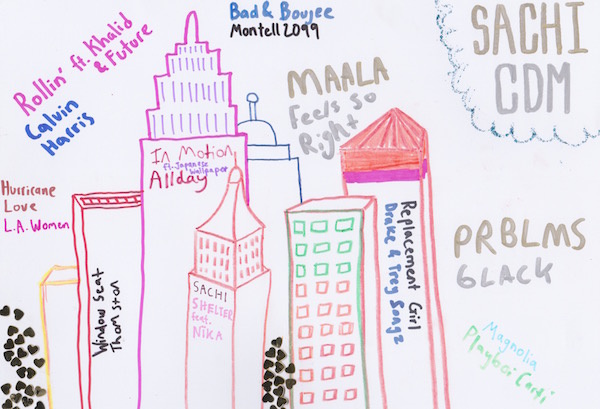 Bad & Boujee
Montell 2099
SACHI
CDM
Rollin' ft. Khalid
& Future
Calvin
Harris
MAALA
Feels So
Right
In Motion
ft. Japanese
Wallpaper
Allday
Hurricane
Love
L.A. Women
Window Seat
Thomston
SACHI
SHELTER
feat.
NÏKA
Replacement Girl
Drake & Trey Songz
PRBLMS
6LACK
Magnolia
Playboi Carti